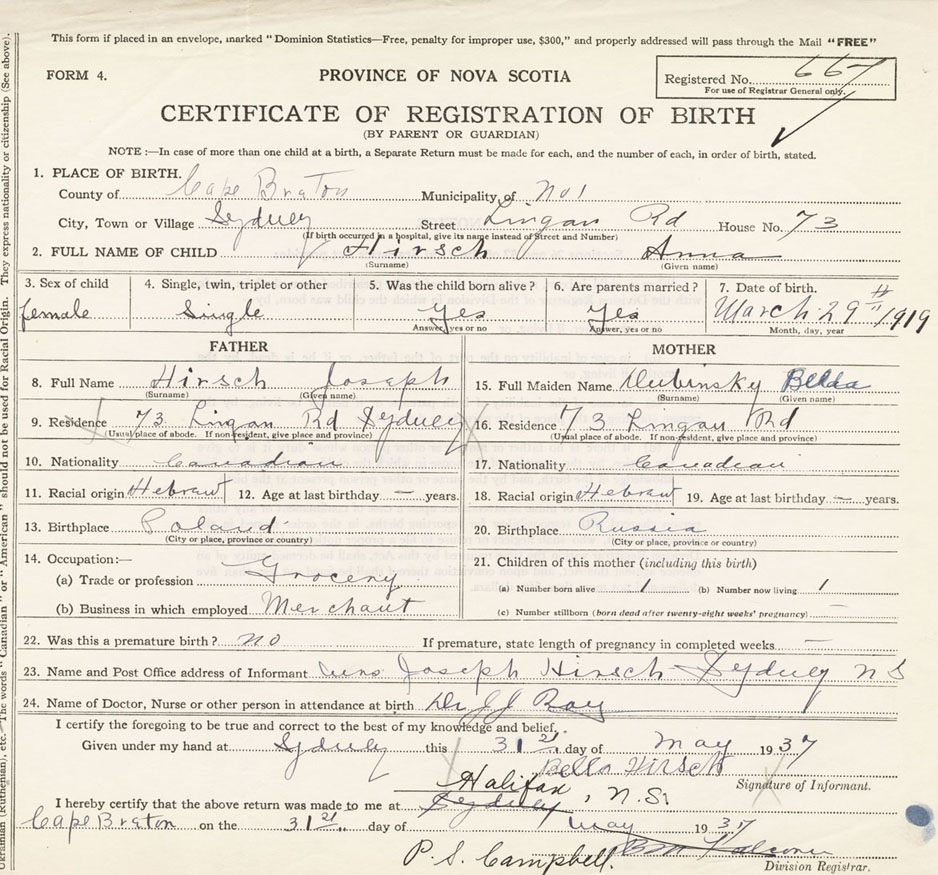 This form if placed in an envelope, marked "Dominion Statistics—Free, penalty for improper use, $300," and properly addressed will pass through the Mail "FREE"
FORM 4.
PROVINCE OF NOVA SCOTIA
Registered No. 667
For use of Registrar General only.
CERTIFICATE OF REGISTRATION OF BIRTH
(BY PARENT OR GUARDIAN)
NOTE :—In case of more than one child at a birth, a Separate Return must be made for each, and the number of each, in order of birth, stated.
1. PLACE OF BIRTH.
County of Cape Braton Municipality of No 1
City, Town or Village Sydney Street Lingan Rd House No. 73
(If birth occurred in a hospital, give its name instead of Street and Number)
2. FULL NAME OF CHILD Hirsch Anna
(Surname) (Given name)
3. Sex of child 4. Single, twin, triplet or other 5. Was the child born alive? 6. Are parents married? 7. Date of birth.
female Single Yes Yes March 29th 1919
Answer, yes or no Answer, yes or no Month, day, year
FATHER MOTHER
8. Full Name Hirsch Joseph 15. Full Maiden Name Dubinsky Bella
(Surname) (Given name) (Surname) (Given name)
9. Residence 73 Lingan Rd Sydney 16. Residence 73 Lingan Rd
Usual place of abode. If non-resident, give place and province) (Usual place of abode. If non-resident, give place and province)
10. Nationality Canadian 17. Nationality Canadian
11. Racial origin Hebrawt 12. Age at last birthday — years. 18. Racial origin Hebrawt 19. Age at last birthday — years.
13. Birthplace Poland 20. Birthplace Russia
(City or place, province or country) (City or place, province or country)
14. Occupation:— 21. Children of this mother (including this birth)
(a) Trade or profession Grocery (a) Number born alive 1 (b) Number now living 1
(b) Business in which employed Merchant (c) Number stillborn (born dead after twenty-eight weeks' pregnancy) —
22. Was this a premature birth? no If premature, state length of pregnancy in completed weeks —
23. Name and Post Office address of Informant Joseph Hirsch Sydney N S
24. Name of Doctor, Nurse or other person in attendance at birth Dr JJ Roy
I certify the foregoing to be true and correct to the best of my knowledge and belief.
Given under my hand at Sydney this 31st day of May 1937
Bella Hirsch
Signature of Informant.
Halifax, N.S.
I hereby certify that the above return was made to me at Sydney
Cape Braton on the 31st day of May 1937
P. S. Campbell.
Division Registrar.
Ukrainian (Ruthenian), etc. The words "Canadian" or "American" should not be used for Racial Origin. They express nationality or citizenship (See above).